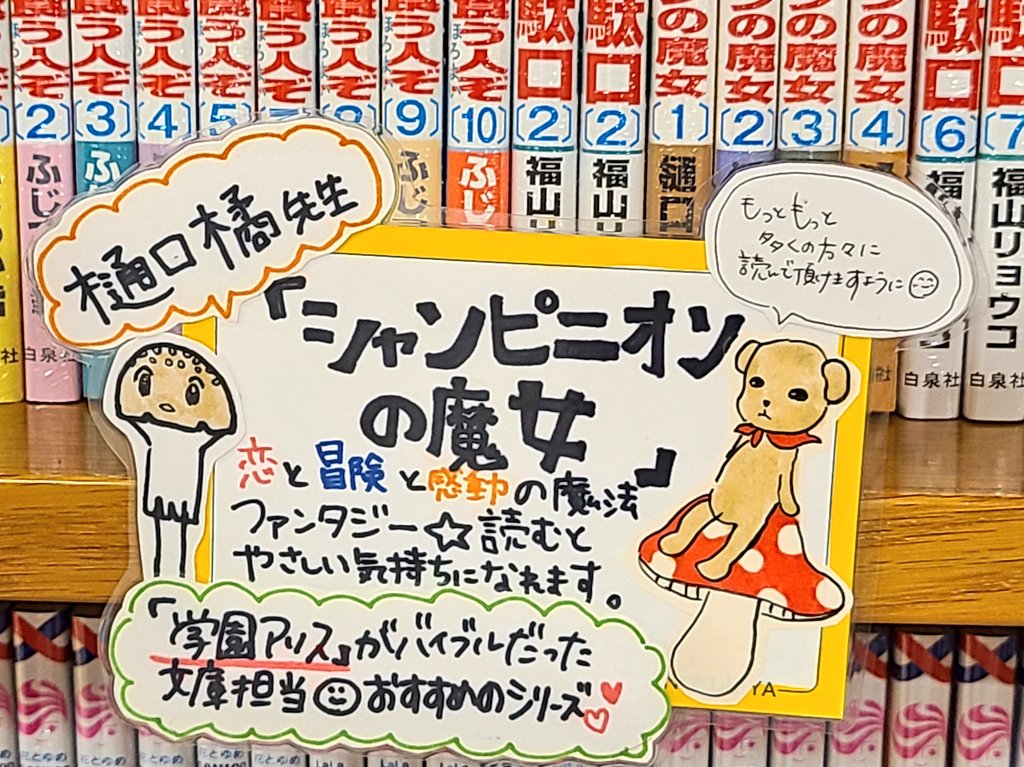 (2)
(3)
(4)
(5)
(9)
(10)
(2)
(2)
(1)
(2)
(3)
(4)
(6)
(7
駄口
駄口
の魔女
の魔女
の魔女
の魔女
駄口
ふじ
福山
福山
樋口
福山リョウコ
白泉社
白泉社
白泉社
樋口橘先生
もっともっと
多くの方々に
読んで頂けますように
『シャンピニオン
の魔女』
恋と冒険と感動の魔法
ファンタジー☆読むと
やさしい気持ちになれます。
『学園アリス』がバイブルだった
文庫担当☺おすすめのシリーズ♥♡
YA
花とゆめ
花とゆめ
花とゆめ
LaLa
LaLa